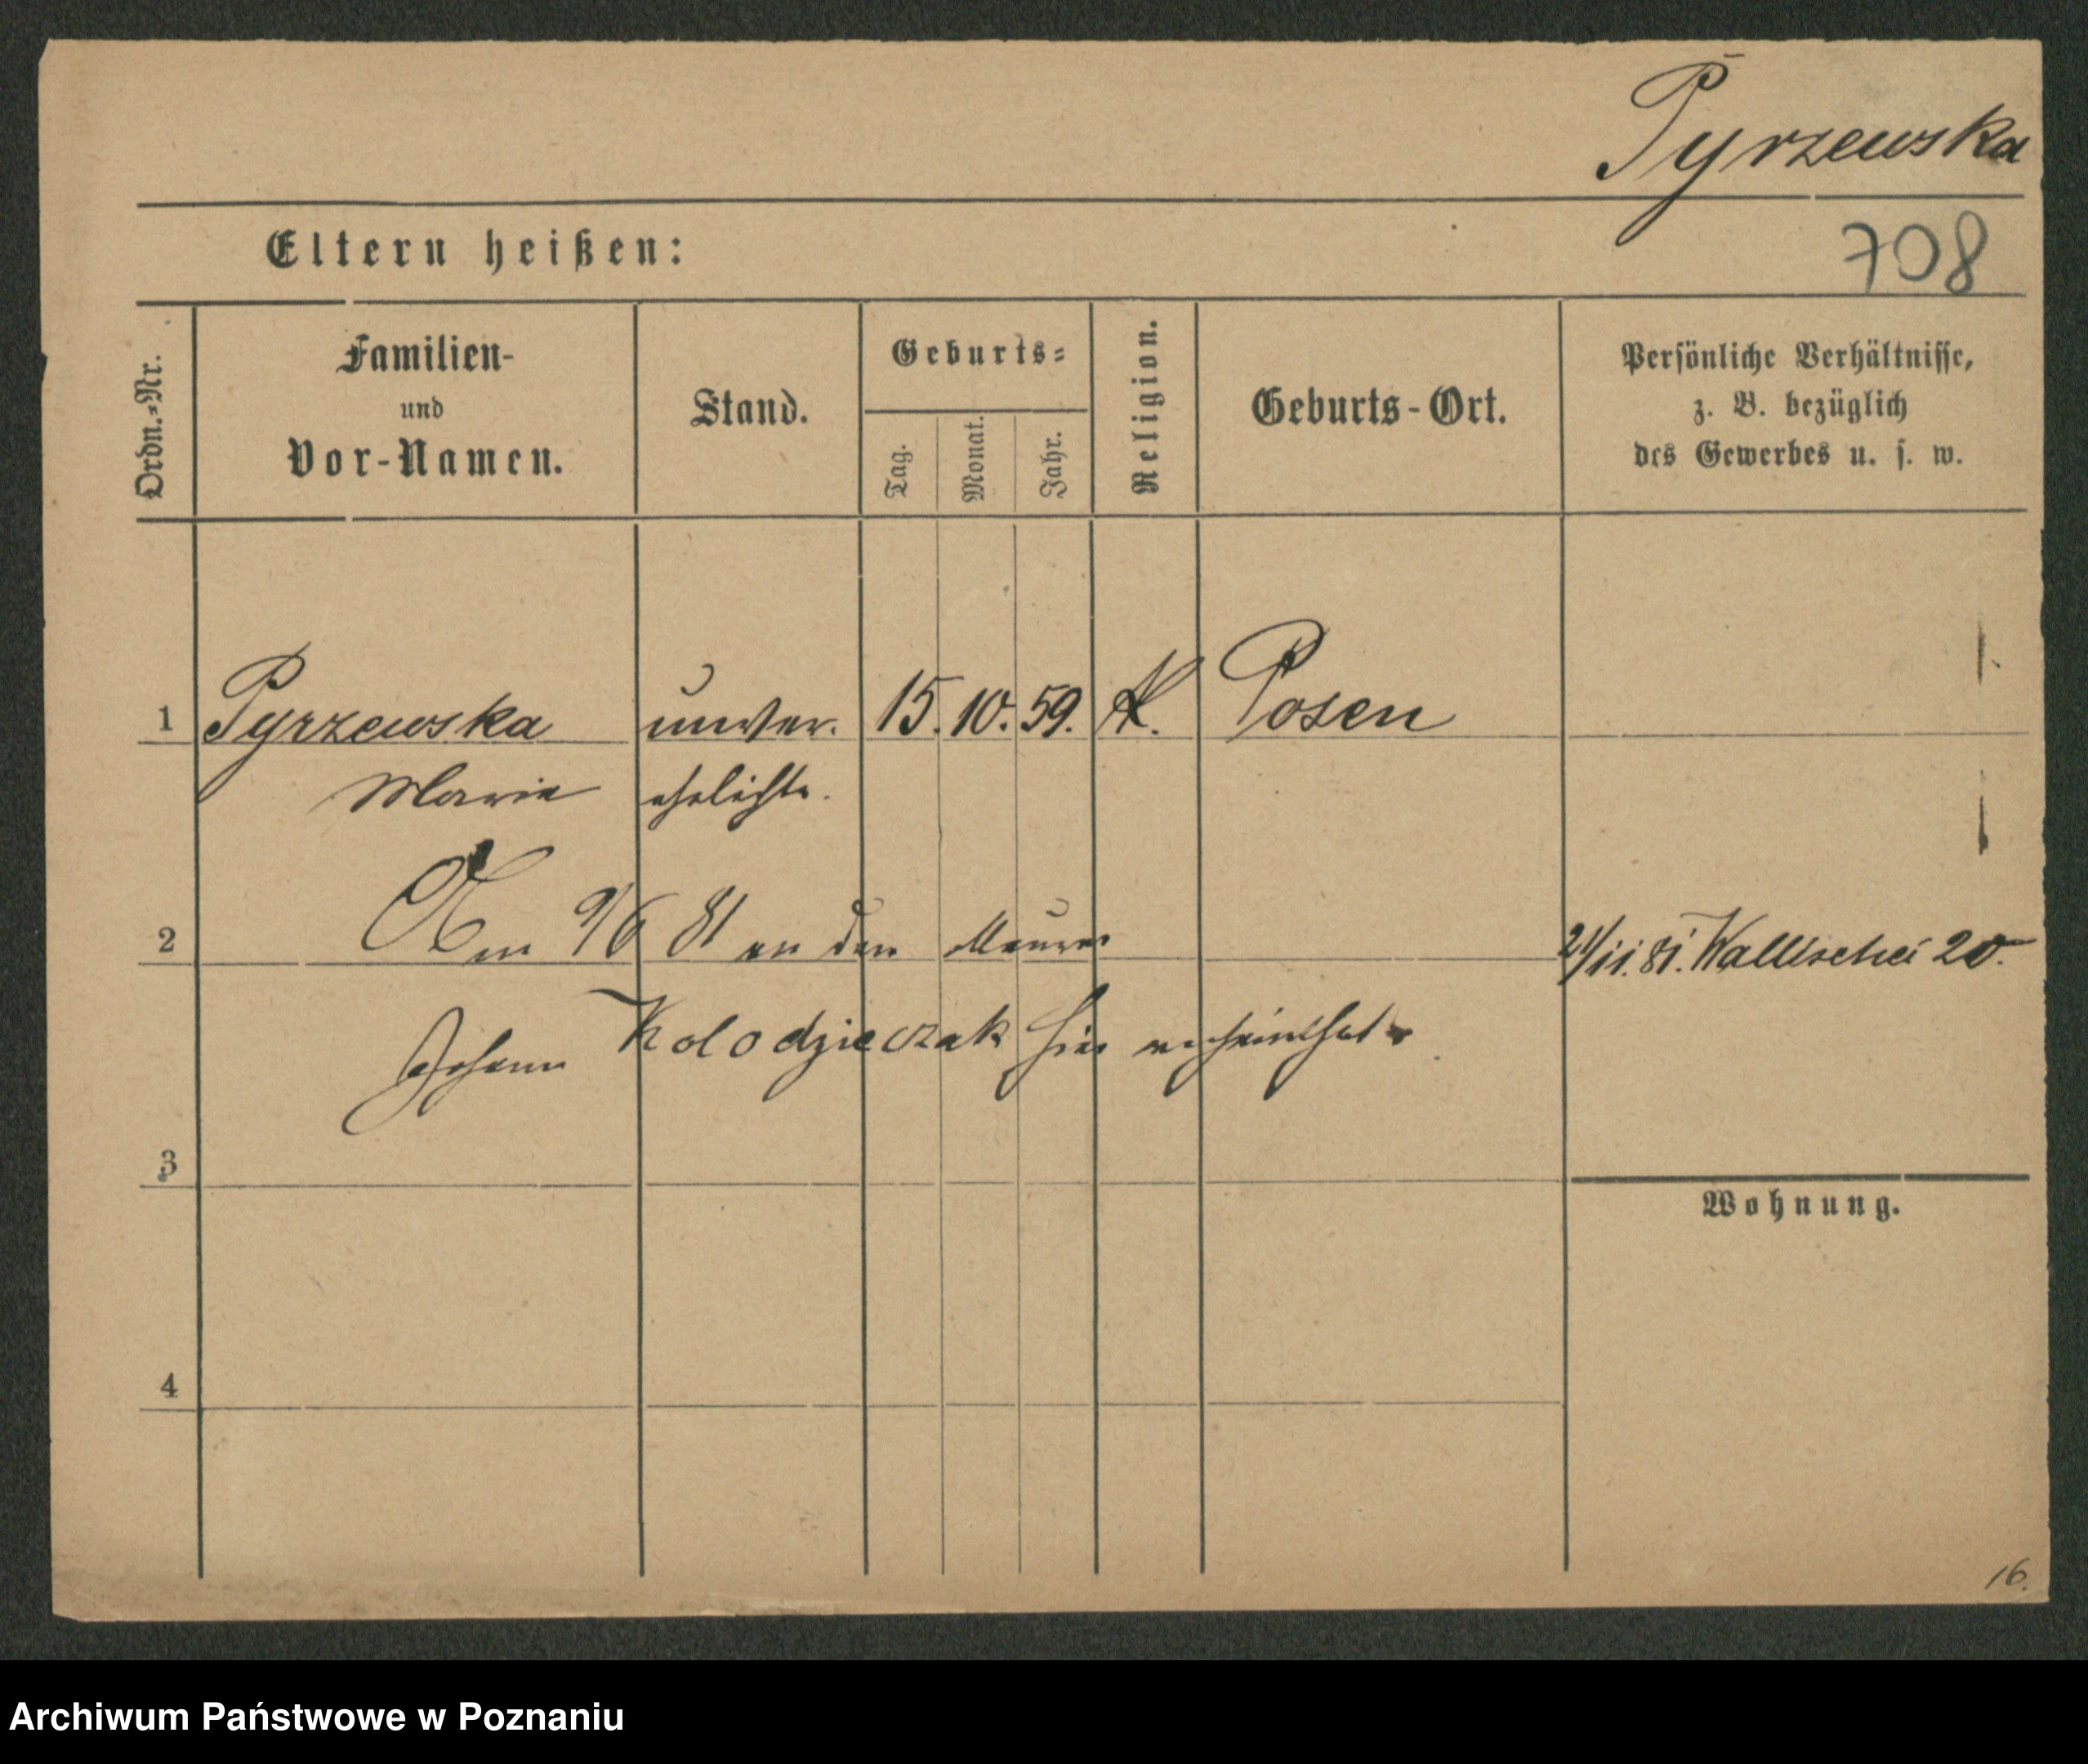 Pyrzewska
708
Eltern heißen:
Ordn.-Nr.
Familien-
und
Vor-Namen.
Stand.
Geburts-
Tag.
Monat.
Jahr.
Religion.
Geburts-Ort.
Persönliche Verhältnisse,
z. B. bezüglich
des Gewerbes u. s. w.
1 Pyrzewska unver. 15. 10. 59. K. Posen
Marie ehelichte.
2 Am 9/6 81 an den Maurer
21/11. 81. Wallischei 20.
Johann Kolodzieczak hier verheirathet
3
Wohnung.
4
16.
Archiwum Państwowe w Poznaniu